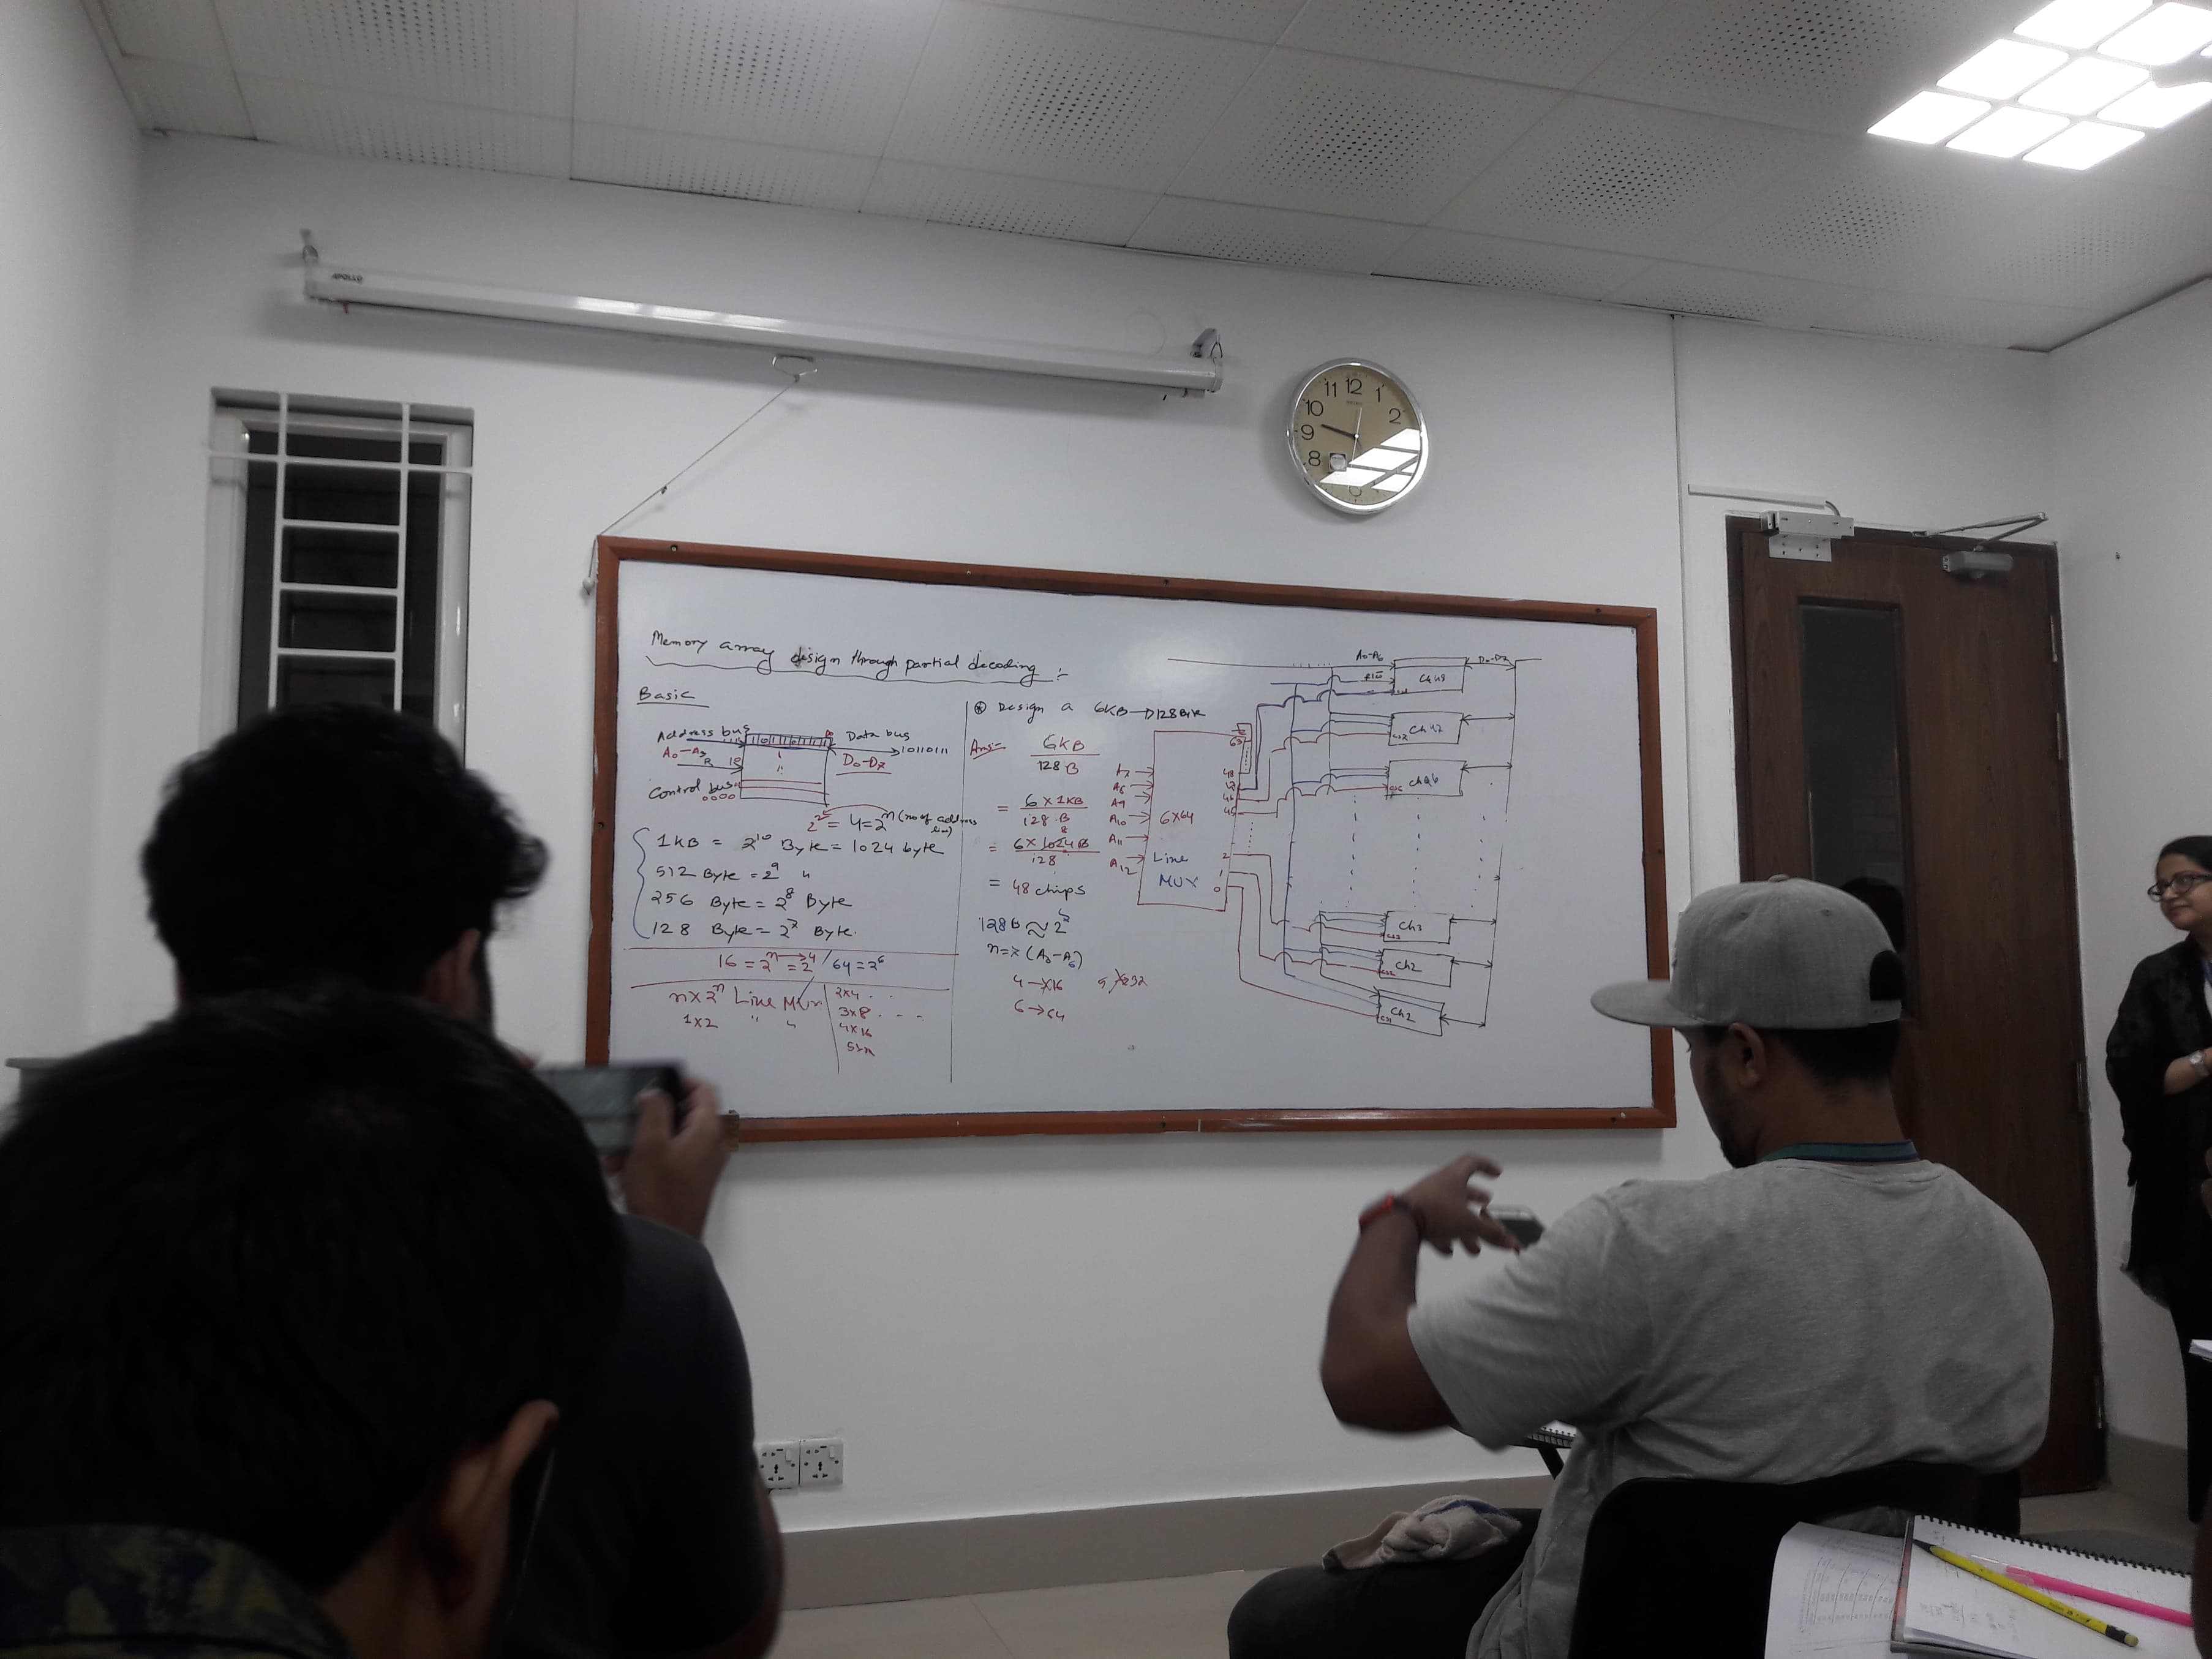 APOLLO
11 12 1
10 2
9
8
Memory array design through partial decoding :-
Basic
Address bus
Data bus
A0-A3
10110111
D0-D7
Control bus
0000
2^2 = 4 = 2^n (no of address line)
1KB = 2^10 Byte = 1024 byte
512 Byte = 2^9 "
256 Byte = 2^8 Byte
128 Byte = 2^7 Byte.
16 = 2^n = 2^4 / 64 = 2^6
n x 2^n Line MUX
1x2 " "
2x4 . .
3x8 . - - -
4x16
⊛ Design a 6KB → 128 Byte
Ans:-
6KB
128 B
= 6 x 1KB
128 B
= 6 x 1024 B
128
8
= 48 chips
128B ≈ 2^7
n=7 (A0-A6)
4 → 16
6 → 64
A7
A8
A9
A10
A11
A12
6x64
Line
MUX
63
48
47
46
45
2
1
0
A0-A6
D0-D7
Ch48
Ch47
Ch46
Ch3
Ch2
Ch2